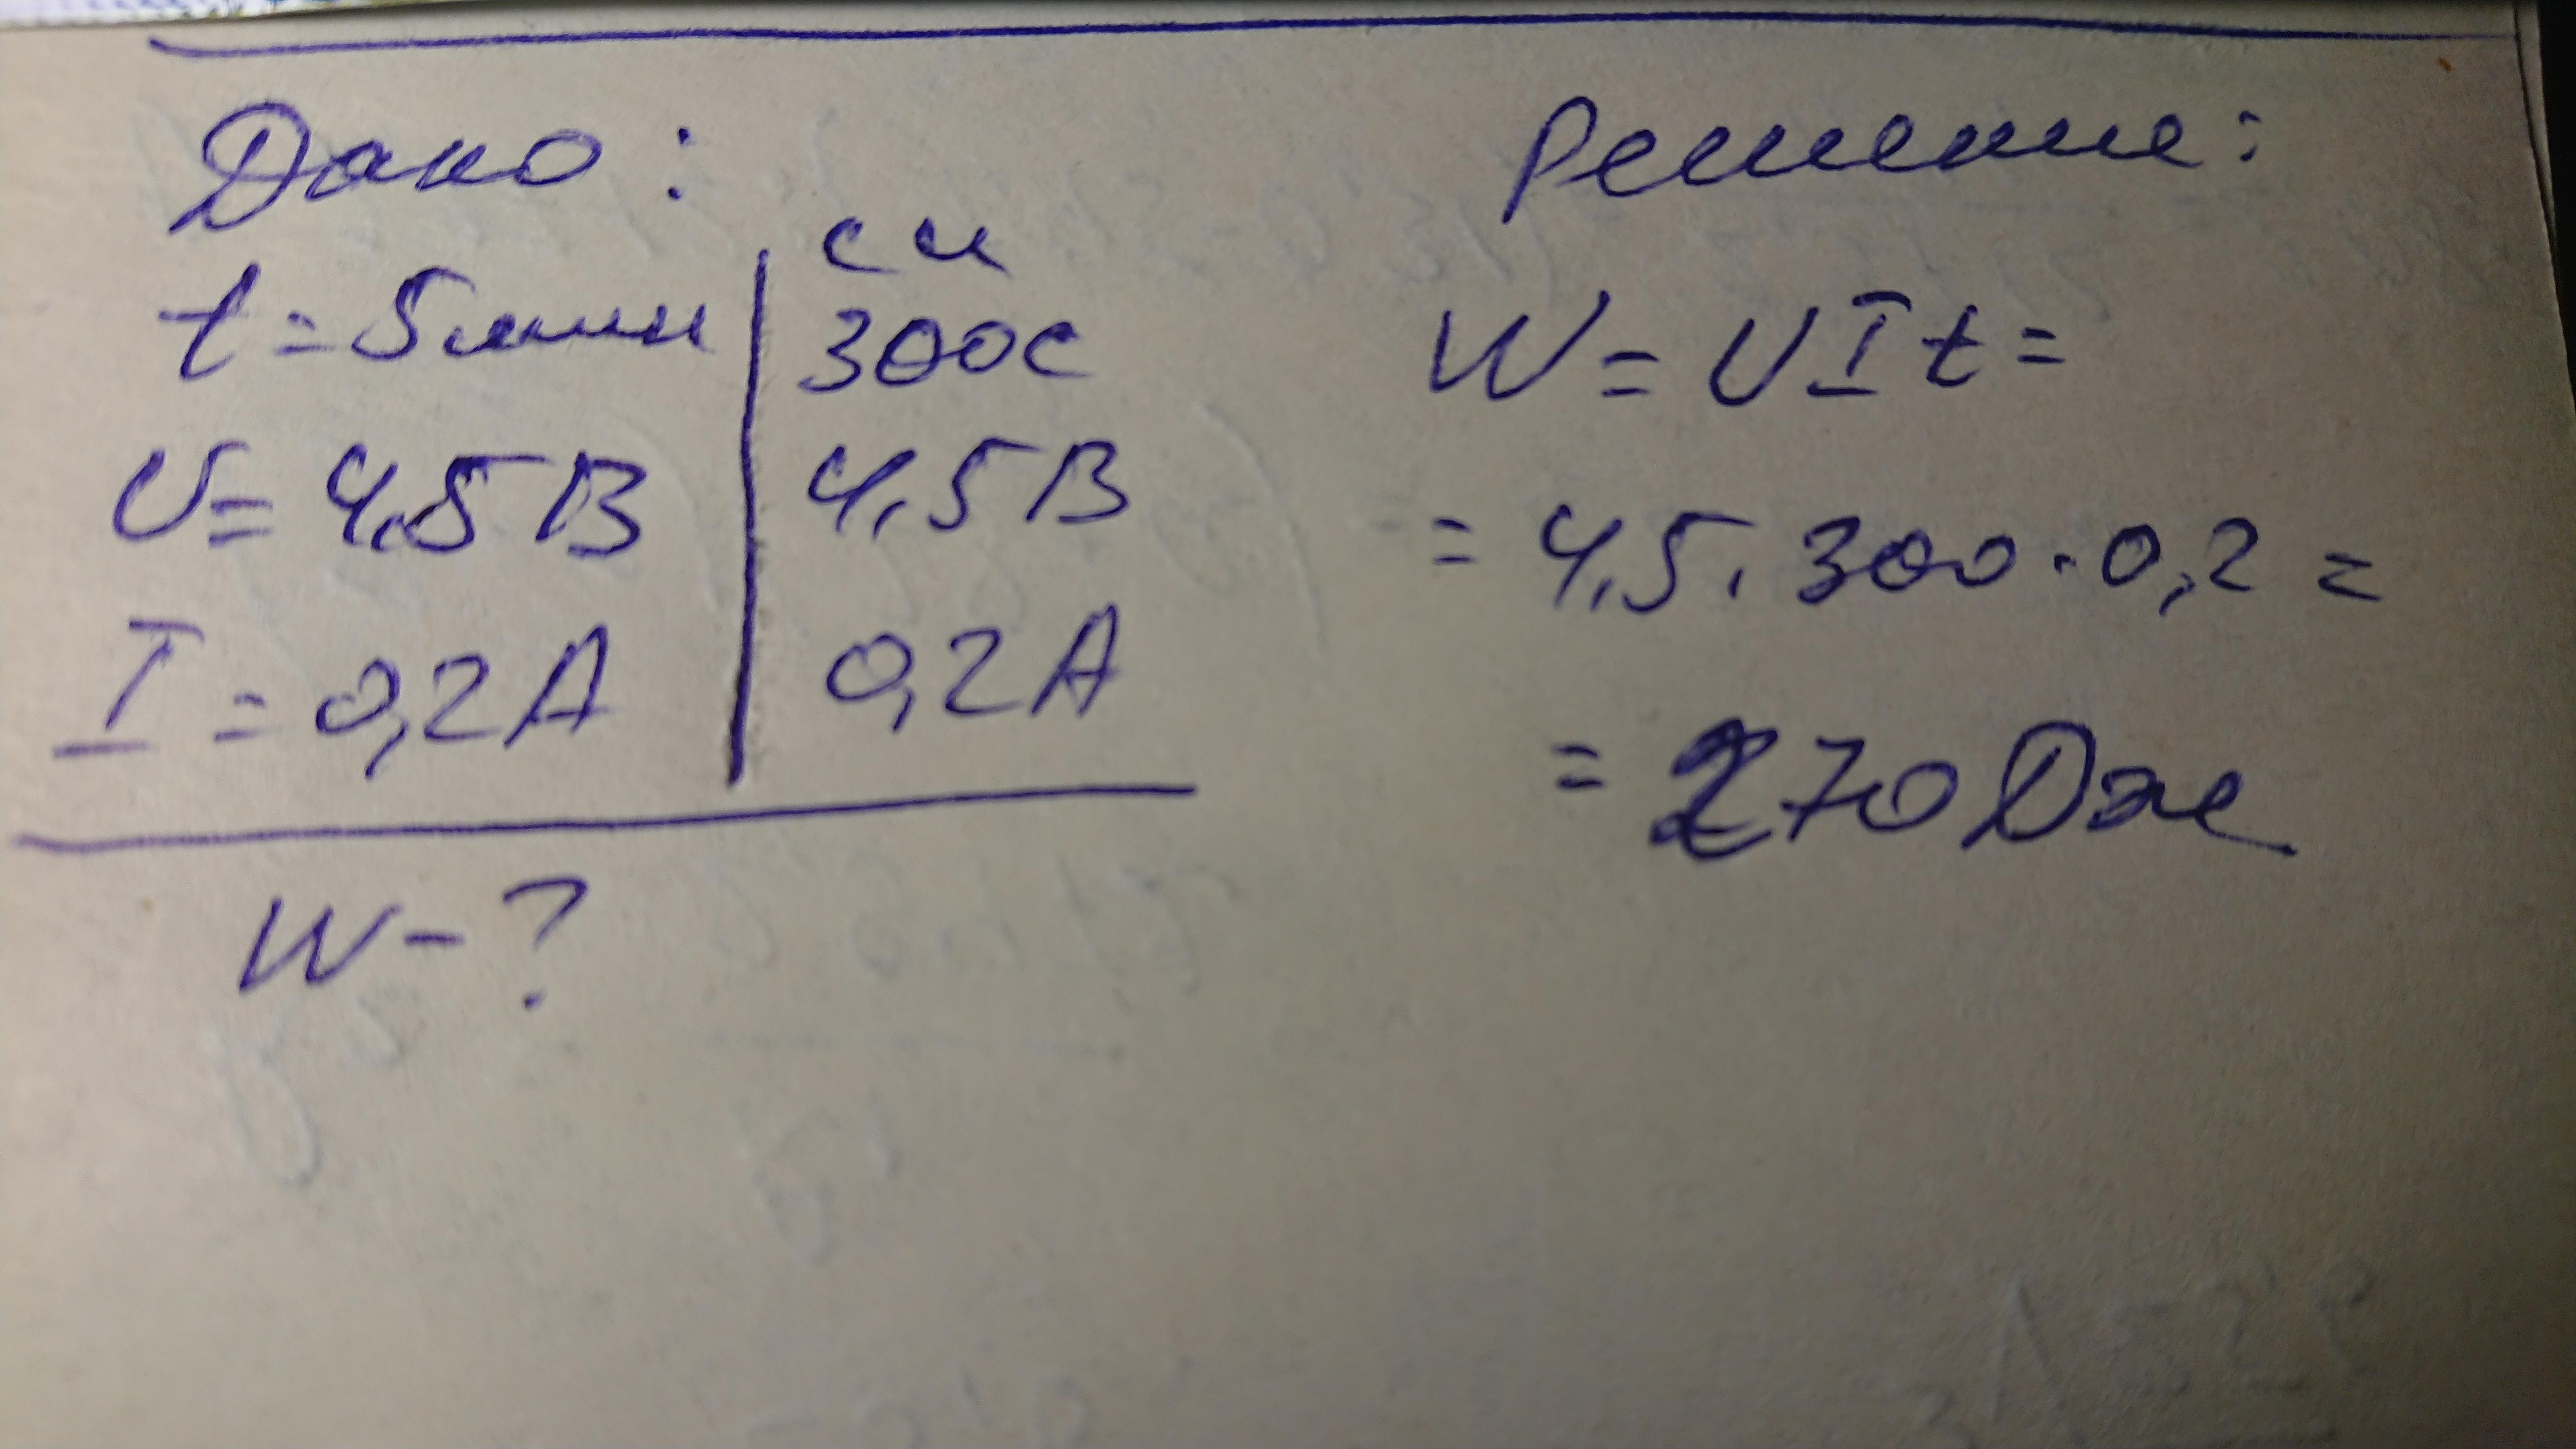 Дано:
си
t = 5 мин 300 с
U = 4,5 В 4,5 В
I = 0,2 А 0,2 А
W - ?
Решение:
W = U I t =
= 4,5 · 300 · 0,2 =
= 270 Дж